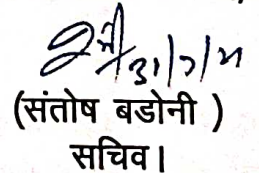 31/7/21
(संतोष बडोनी )
सचिव।